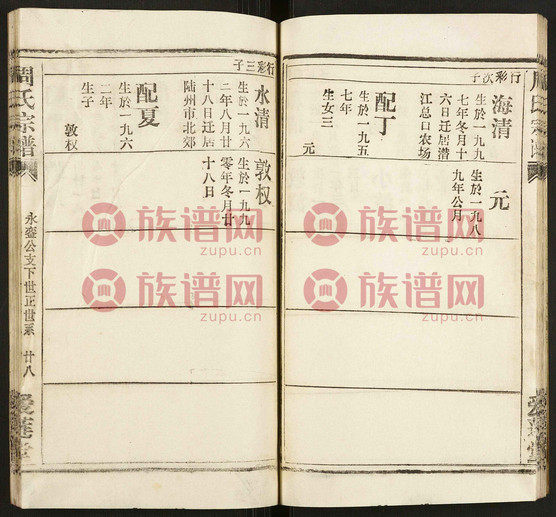 周氏宗
行彩次子
海清
生於一九九
七年冬月十
六日迁居潜
江总口农场
配丁
生於一九五
七年
生女三
元
元
生於一九八
九年公月
爱莲堂
行彩三子
水清
生於一九六
二年八月廿
十八日迁居
陆州市北郊
配夏
生於一九六
二年
生子
敦权
敦权
生於一九九
零年冬月廿
十八日
周氏宗谱
永盛公支下世正世系
廿八
爱莲堂
族谱网
zupu.cn
族谱网
zupu.cn
族谱网
zupu.cn
族谱网
zupu.cn